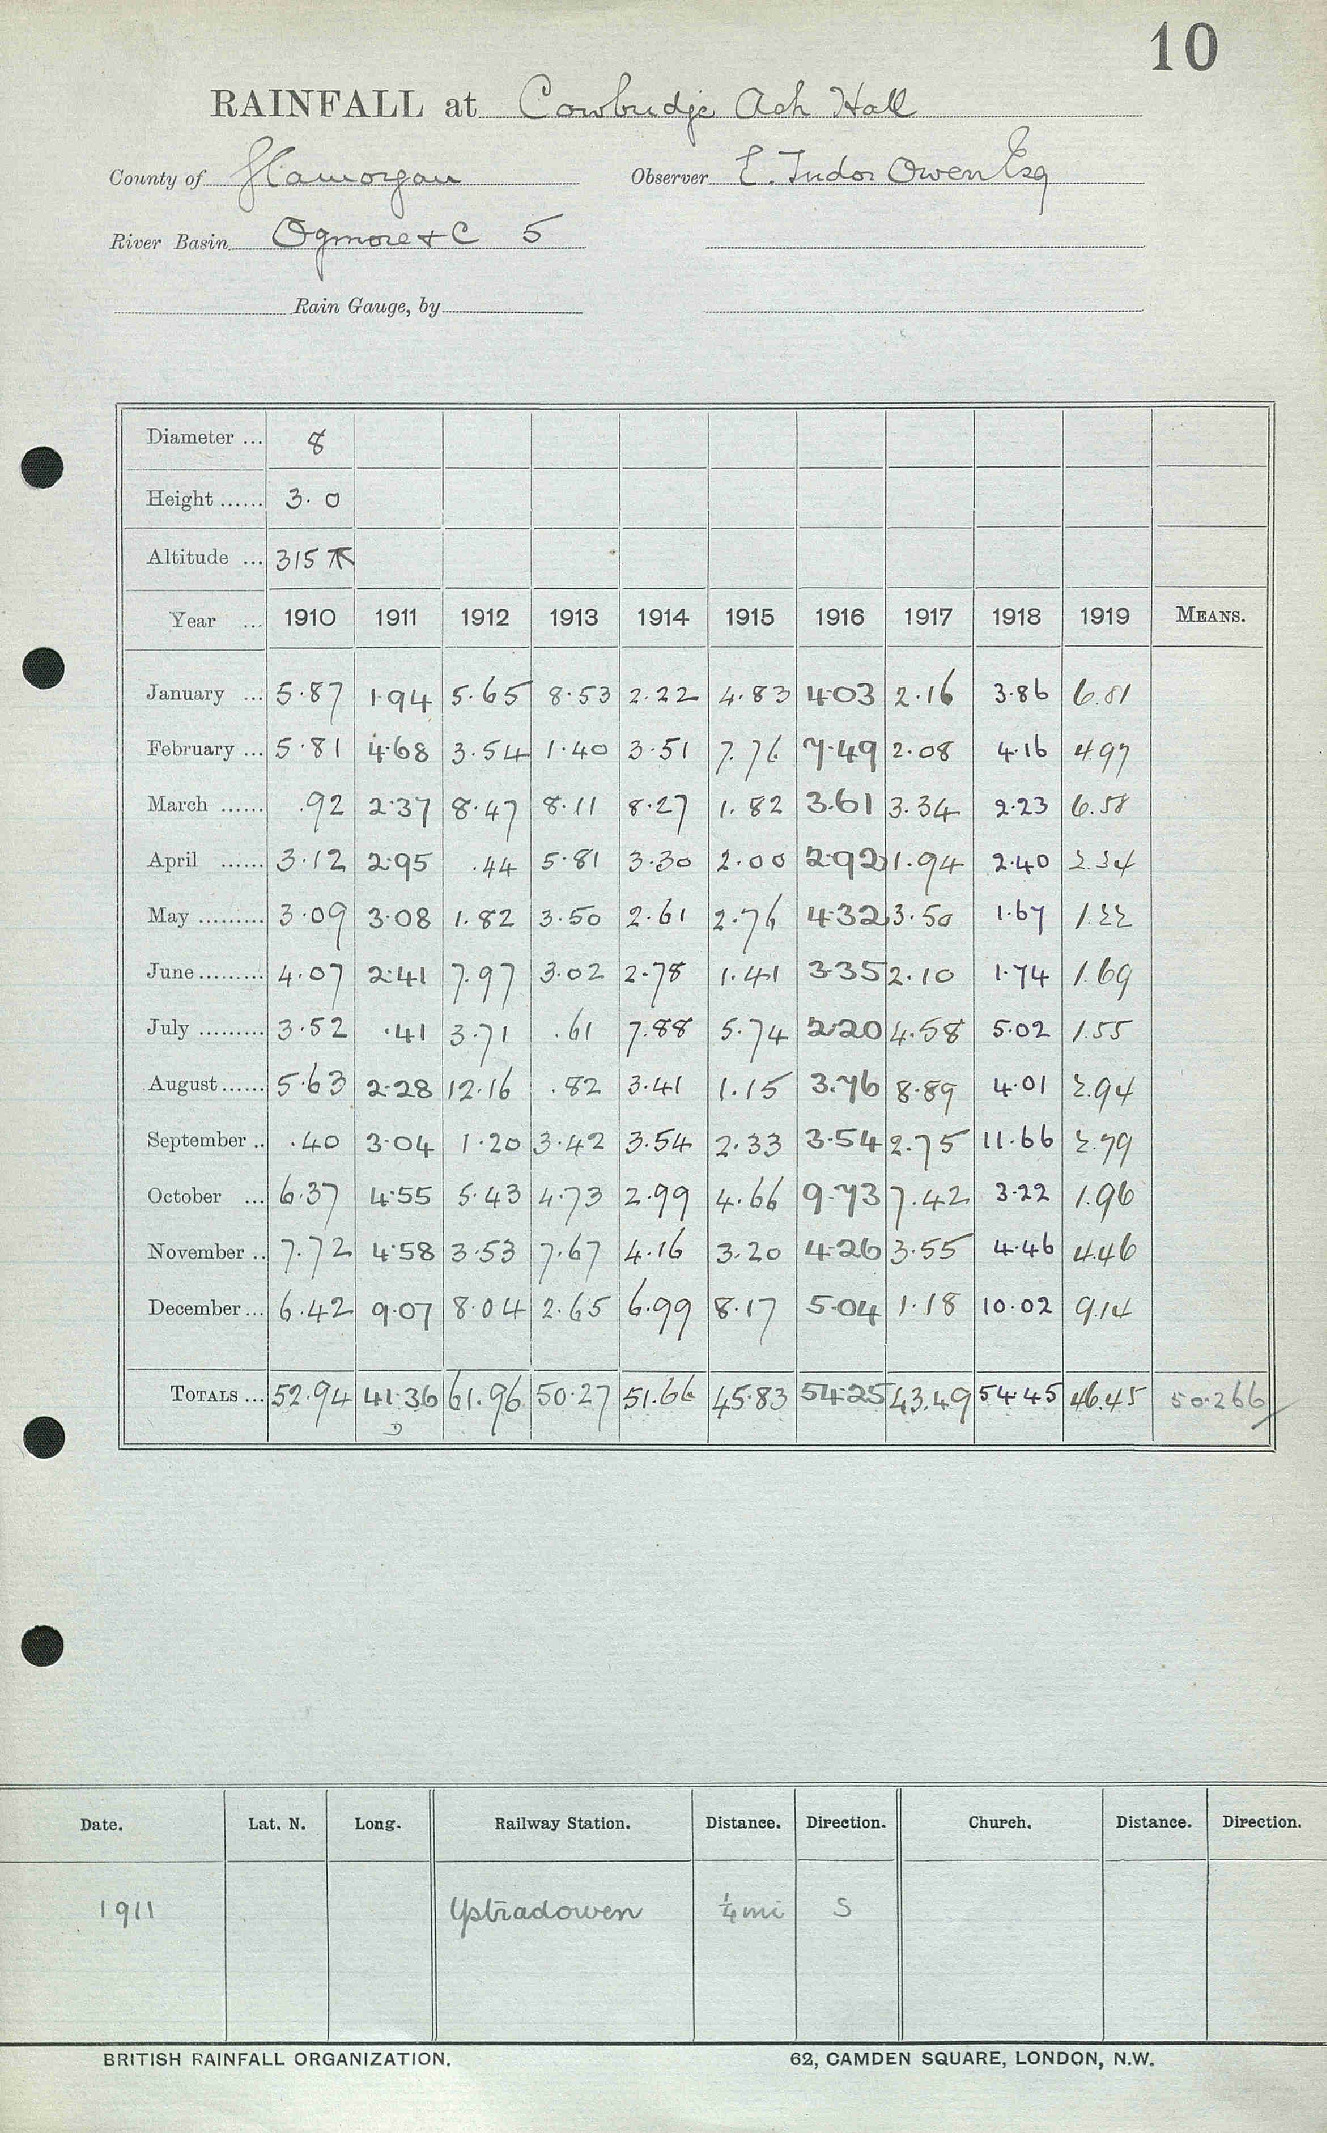 10
RAINFALL at Cowbridge Ash Hall
County of Glamorgan Observer E. Tudor Owen Esq
River Basin Ogmore & C 5
Rain Gauge, by
Diameter ... 8
Height ...... 3.0
Altitude ... 315
Year ... 1910 1911 1912 1913 1914 1915 1916 1917 1918 1919 MEANS.
January ... 5.87 1.94 5.65 8.53 2.22 4.83 4.03 2.16 3.86 6.81
February ... 5.81 4.68 3.54 1.40 3.51 7.76 7.49 2.08 4.16 4.97
March ...... .92 2.37 8.47 8.11 8.27 1.82 3.61 3.34 2.23 6.58
April ...... 3.12 2.95 .44 5.81 3.30 2.00 2.92 1.94 2.40 2.34
May ......... 3.09 3.08 1.82 3.50 2.61 2.76 4.32 3.50 1.67 1.22
June ......... 4.07 2.41 7.97 3.02 2.78 1.41 3.35 2.10 1.74 1.69
July ......... 3.52 .41 3.71 .61 7.88 5.74 2.20 4.58 5.02 1.55
August ...... 5.63 2.28 12.16 .82 3.41 1.15 3.76 8.89 4.01 2.94
September .. .40 3.04 1.20 3.42 3.54 2.33 3.54 2.75 11.66 2.79
October ... 6.37 4.55 5.43 4.73 2.99 4.66 9.73 7.42 3.22 1.96
November .. 7.72 4.58 3.53 7.67 4.16 3.20 4.26 3.55 4.46 4.46
December ... 6.42 9.07 8.04 2.65 6.99 8.17 5.04 1.18 10.02 9.14
TOTALS ... 52.94 41.36 61.96 50.27 51.66 45.83 54.25 43.49 54.45 46.45 50.266
Date. Lat. N. Long. Railway Station. Distance. Direction. Church. Distance. Direction.
1911 Ystradowen ¼ mi S
BRITISH RAINFALL ORGANIZATION. 62, CAMDEN SQUARE, LONDON, N.W.